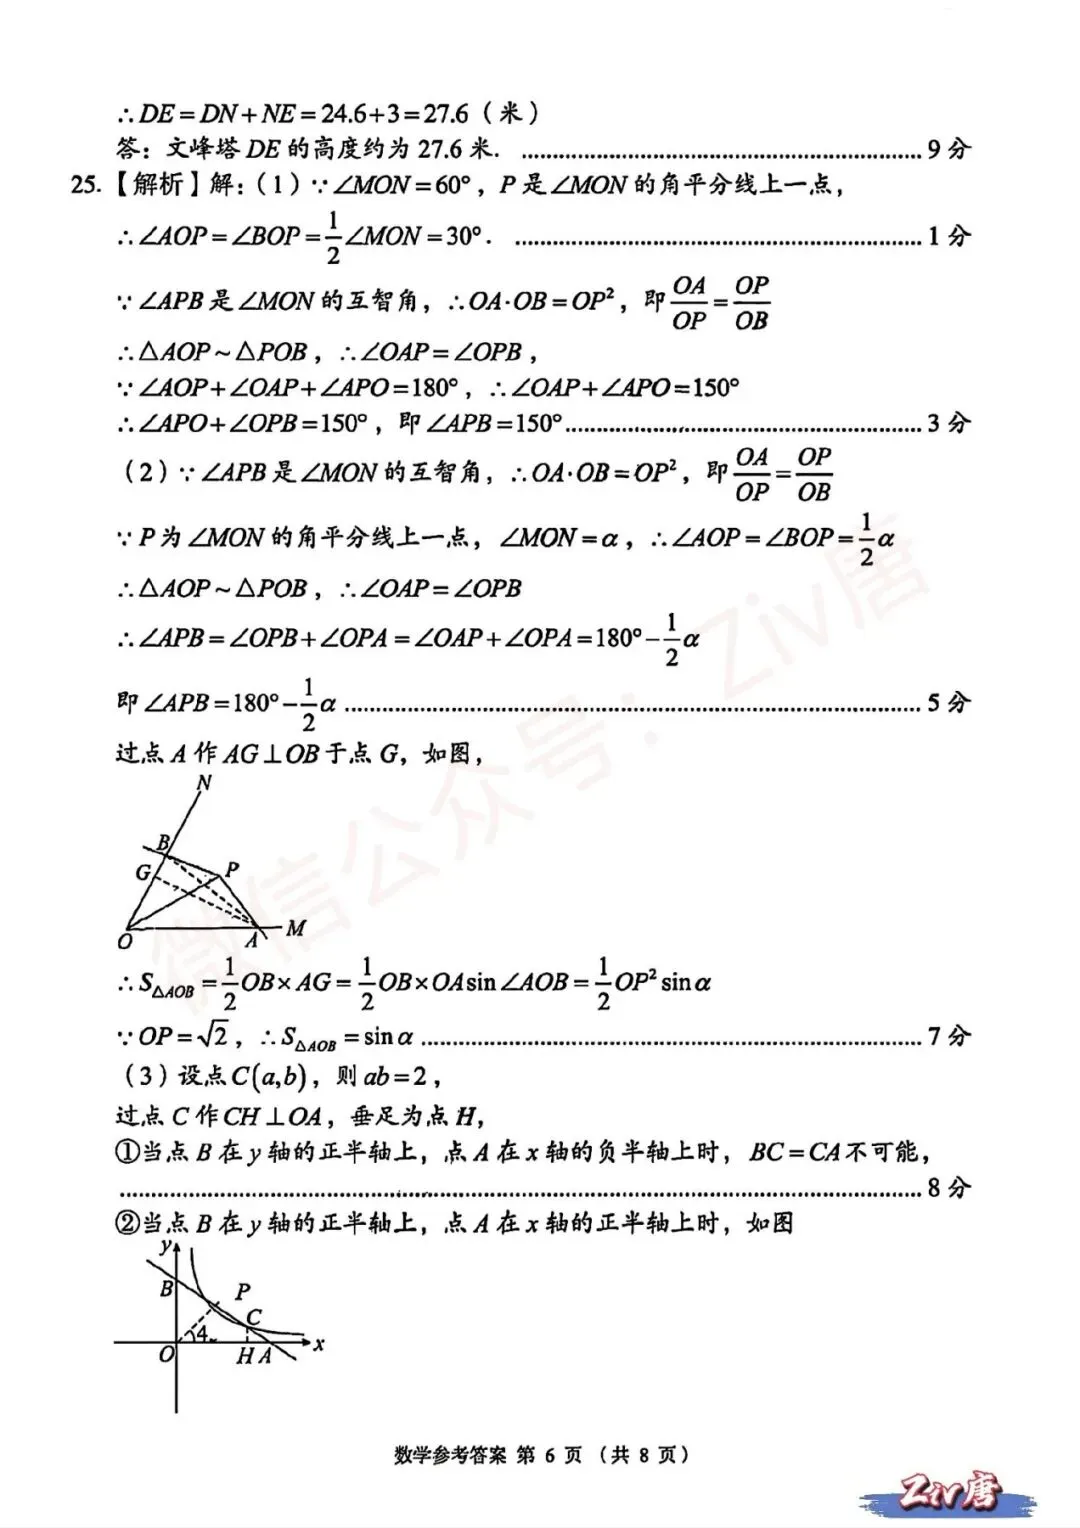 ∴DE=DN+NE=24.6+3=27.6（米）
答：文峰塔DE的高度约为27.6米. ……9分
25.【解析】解：(1)∵∠MON=60°，P是∠MON的角平分线上一点，
∴∠AOP=∠BOP=1/2∠MON=30°. ……1分
∵∠APB是∠MON的互智角，∴OA·OB=OP²，即OA/OP=OP/OB
∴△AOP~△POB，∴∠OAP=∠OPB，
∵∠AOP+∠OAP+∠APO=180°，∴∠OAP+∠APO=150°
∴∠APO+∠OPB=150°，即∠APB=150° ……3分
(2)∵∠APB是∠MON的互智角，∴OA·OB=OP²，即OA/OP=OP/OB
∵P为∠MON的角平分线上一点，∠MON=α，∴∠AOP=∠BOP=1/2α
∴△AOP~△POB，∴∠OAP=∠OPB
∴∠APB=∠OPB+∠OPA=∠OAP+∠OPA=180°-1/2α
即∠APB=180°-1/2α ……5分
过点A作AG⊥OB于点G，如图，
N
B
G
P
O
A
M
∴S△AOB=1/2OB×AG=1/2OB×OAsin∠AOB=1/2OP²sinα
∵OP=√2，∴S△AOB=sinα ……7分
(3)设点C(a,b)，则ab=2，
过点C作CH⊥OA，垂足为点H，
①当点B在y轴的正半轴上，点A在x轴的负半轴上时，BC=CA不可能，
……8分
②当点B在y轴的正半轴上，点A在x轴的正半轴上时，如图
y
B
P
C
4
O
H A
x
数学参考答案 第6页（共8页）
微信公众号：Ziv唐
Ziv唐